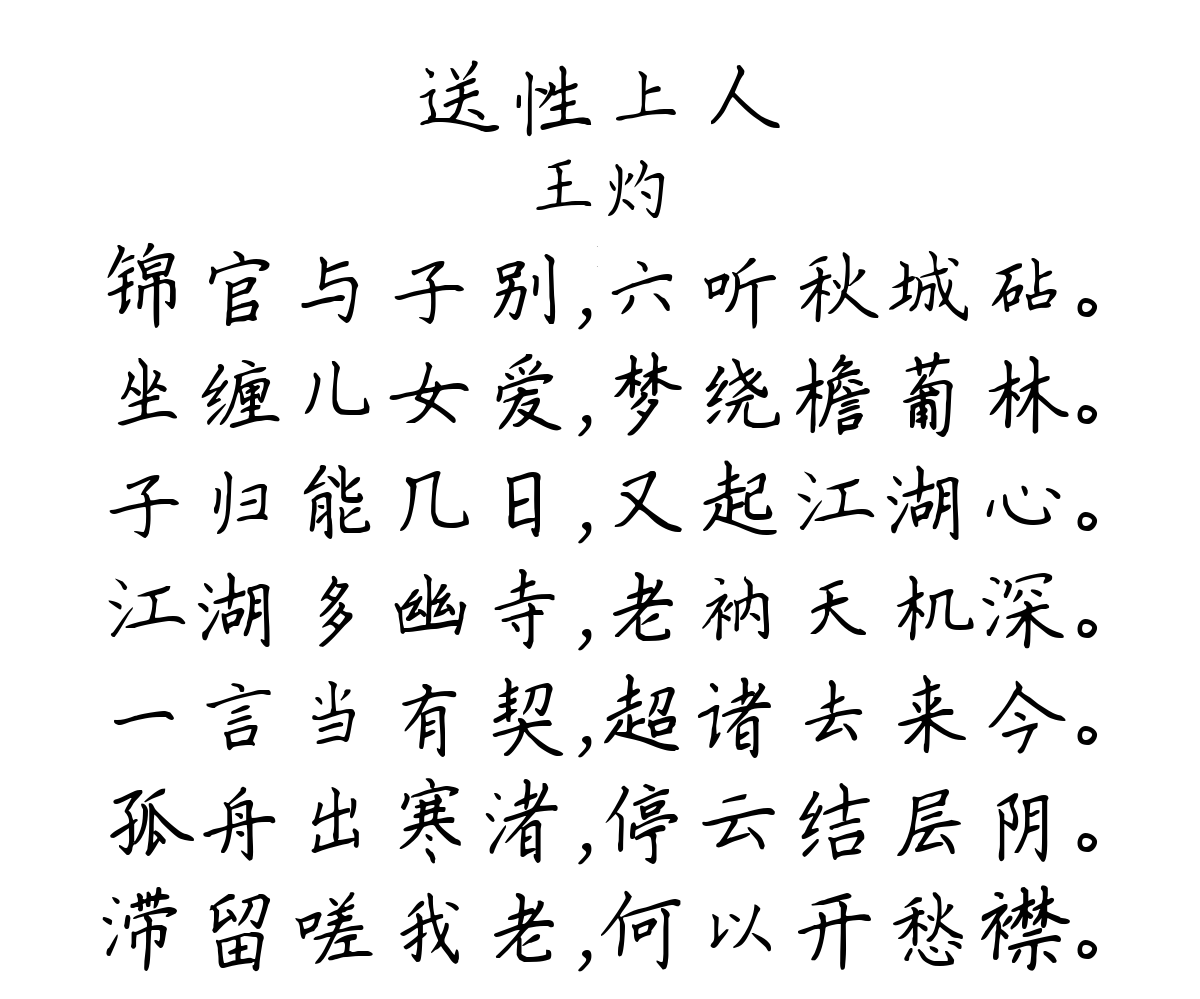 送性上人
王灼
锦官与子别,六听秋城砧。
坐缠儿女爱,梦绕檐葡林。
子归能几日,又起江湖心。
江湖多幽寺,老衲天机深。
一言当有契,超诸去来今。
孤舟出寒渚,停云结层阴。
滞留嗟我老,何以开愁襟。